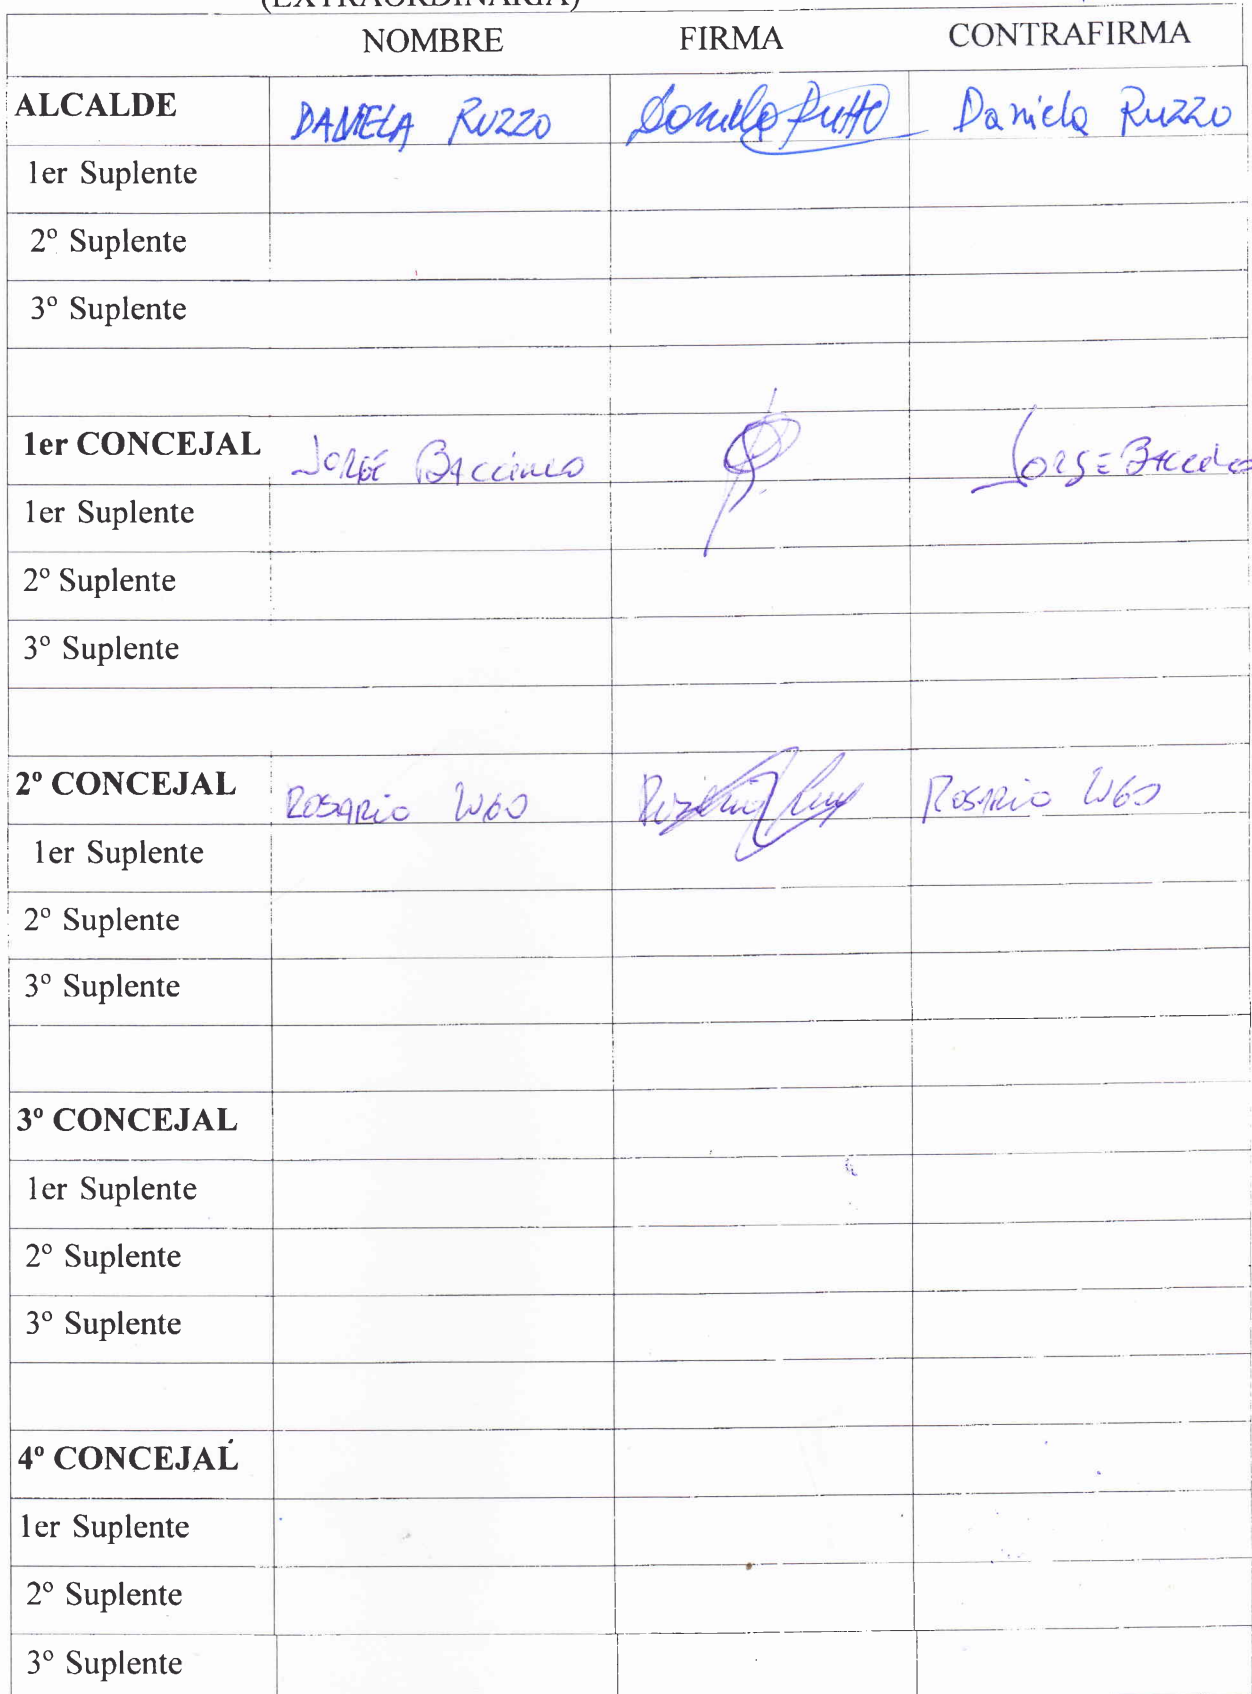 (EXTRAORDINARIA)
NOMBRE FIRMA CONTRAFIRMA
ALCALDE DANIELA RUZZO Daniela Ruzzo
1er Suplente
2º Suplente
3º Suplente
1er CONCEJAL JORGE JORGE
1er Suplente
2º Suplente
3º Suplente
2º CONCEJAL ROSARIO LUGO ROSARIO LUGO
1er Suplente
2º Suplente
3º Suplente
3º CONCEJAL
1er Suplente
2º Suplente
3º Suplente
4º CONCEJAL
1er Suplente
2º Suplente
3º Suplente